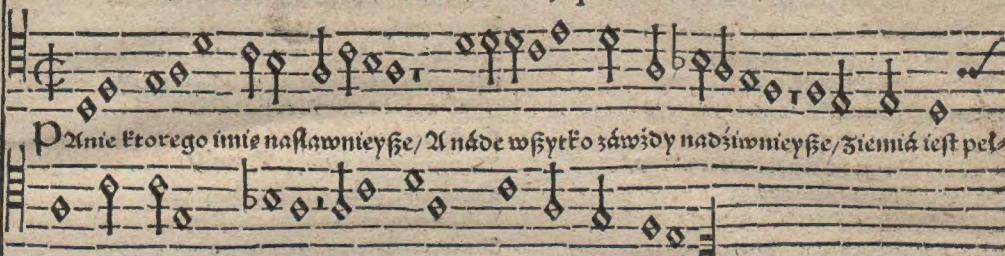 PAnie ktorego imię nasławnieyſze/ A náde wſzytko záwżdy nadźiwnieyſze/ Ziemiá ieſt peł⸗